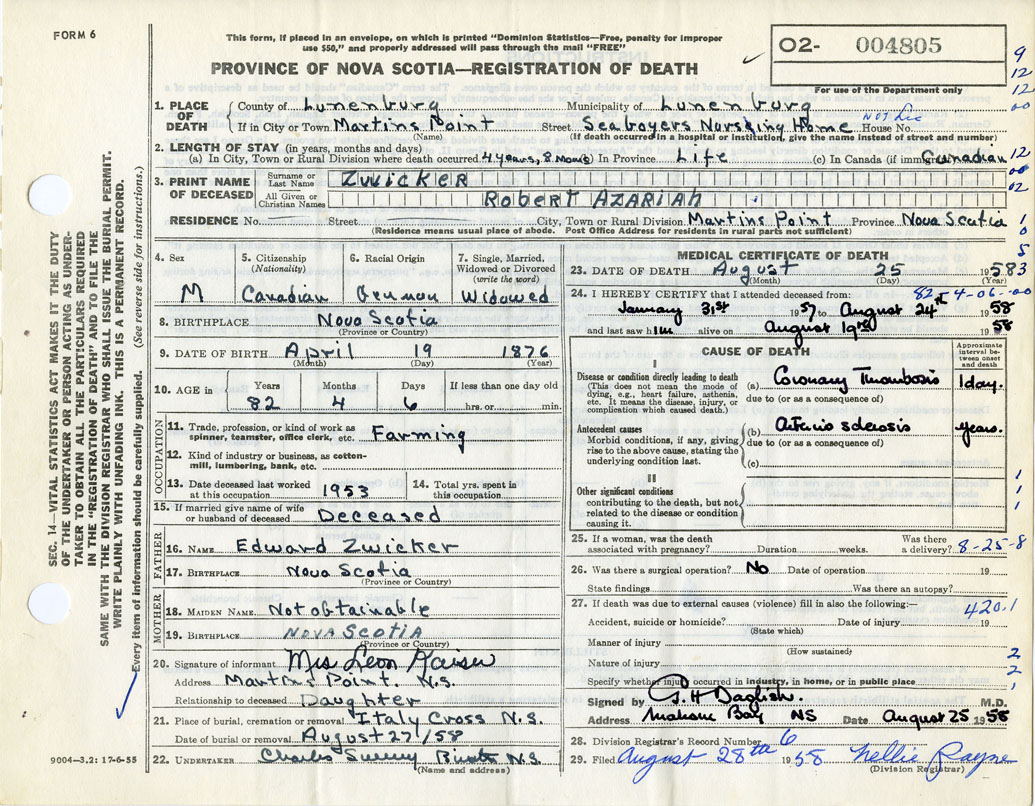 FORM 6
This form, if placed in an envelope, on which is printed "Dominion Statistics—Free, penalty for improper
use $50," and properly addressed will pass through the mail "FREE"
O2- 004805
For use of the Department only
PROVINCE OF NOVA SCOTIA—REGISTRATION OF DEATH
9
12
12
00
12
00
02
1
0
5
1. PLACE OF DEATH { County of Lunenburg Municipality of Lunenburg
If in City or Town Martins Point (Name) Street Seaboyers Nursing Home House No. NOT Lic
(If death occurred in a hospital or institution, give the name instead of street and number)
2. LENGTH OF STAY (in years, months and days)
(a) In City, Town or Rural Division where death occurred 4 years, 8 mon(s) In Province Life (c) In Canada (if immigrant) Canadian
3. PRINT NAME OF DECEASED { Surname or Last Name Zwicker
All Given or Christian Names Robert AZARiah
RESIDENCE No. Street City, Town or Rural Division Martins Point Province Nova Scotia
(Residence means usual place of abode. Post Office Address for residents in rural parts not sufficient)
4. Sex M
5. Citizenship (Nationality) Canadian
6. Racial Origin German
7. Single, Married, Widowed or Divorced (write the word) Widowed
8. BIRTHPLACE Nova Scotia
(Province or Country)
9. DATE OF BIRTH April 19 1876
(Month) (Day) (Year)
10. AGE in Years 82 Months 4 Days 6 If less than one day old hrs. or min.
OCCUPATION
11. Trade, profession, or kind of work as spinner, teamster, office clerk, etc. Farming
12. Kind of industry or business, as cotton-mill, lumbering, bank, etc.
13. Date deceased last worked at this occupation 1953
14. Total yrs. spent in this occupation
15. If married give name of wife or husband of deceased Deceased
FATHER
16. NAME Edward Zwicker
17. BIRTHPLACE Nova Scotia
(Province or Country)
MOTHER
18. MAIDEN NAME Not obtainable
19. BIRTHPLACE NOVA SCOTIA
(Province or Country)
20. Signature of informant Mrs Leon Kaiser
Address Martins Point. N.S.
Relationship to deceased Daughter
21. Place of burial, cremation or removal Italy Cross N.S.
Date of burial or removal August 27/58
22. UNDERTAKER Charles N.S.
(Name and address)
9004—3.2: 17-6-55
SEC. 14—VITAL STATISTICS ACT MAKES IT THE DUTY
OF THE UNDERTAKER OR PERSON ACTING AS UNDER-
TAKER TO OBTAIN ALL THE PARTICULARS REQUIRED
IN THE "REGISTRATION OF DEATH" AND TO FILE THE
SAME WITH THE DIVISION REGISTRAR WHO SHALL ISSUE THE BURIAL PERMIT.
WRITE PLAINLY WITH UNFADING INK. THIS IS A PERMANENT RECORD.
Every item of information should be carefully supplied. (See reverse side for instructions.)
MEDICAL CERTIFICATE OF DEATH
23. DATE OF DEATH August 25 1958 3
(Month) (Day) (Year)
82-4-06-00
24. I HEREBY CERTIFY that I attended deceased from:
January 31st 1957 to August 24th 1958
and last saw him alive on August 19rd 1958
CAUSE OF DEATH
Approximate interval between onset and death
I
Disease or condition directly leading to death
(This does not mean the mode of dying, e.g., heart failure, asthenia, etc. It means the disease, injury, or complication which caused death.)
(a) Coronary Thrombosis 1 day.
due to (or as a consequence of)
Antecedent causes
Morbid conditions, if any, giving rise to the above cause, stating the underlying condition last.
(b) Arterio sclerosis years.
due to (or as a consequence of)
(c)
II
Other significant conditions
contributing to the death, but not related to the disease or condition causing it.
1
1
1
25. If a woman, was the death associated with pregnancy? Duration weeks. Was there a delivery? 8-25-8
26. Was there a surgical operation? No Date of operation 19
State findings Was there an autopsy?
27. If death was due to external causes (violence) fill in also the following:— 420.1
Accident, suicide or homicide? Date of injury 19
(State which)
Manner of injury
(How sustained)
2
Nature of injury
2
Specify whether injury occurred in industry, in home, or in public place
1
Signed by G. H Daglish. M.D.
Address Mahone Bay NS Date August 25 1958
28. Division Registrar's Record Number 6
29. Filed August 28th 1958 Nellie Rayne
(Division Registrar)